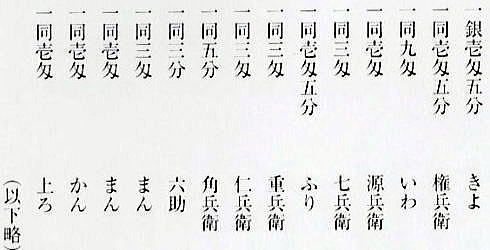 一銀壱匁五分　きよ
一同壱匁五分　権兵衛
一同九匁　いわ
一同壱匁　源兵衛
一同三匁　七兵衛
一同壱匁五分　ふり
一同三匁　重兵衛
一同三匁　仁兵衛
一同五分　角兵衛
一同三分　六助
一同三匁　まん
一同壱匁　まん
一同壱匁　かん
一同壱匁　上ろ
（以下略）